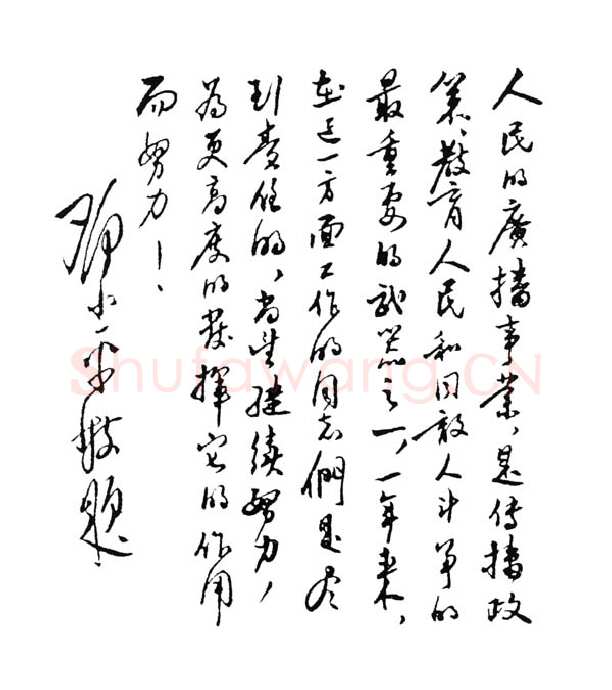 人民的廣播事業，是傳播政
策、教育人民和同敵人斗爭的
最重要的武器之一，一年來，
在这一方面工作的同志們是尽
到責任的，尚望継續努力，
為更高度的發揮它的作用
而努力！
鄧小平敬題
Shufawang.CN